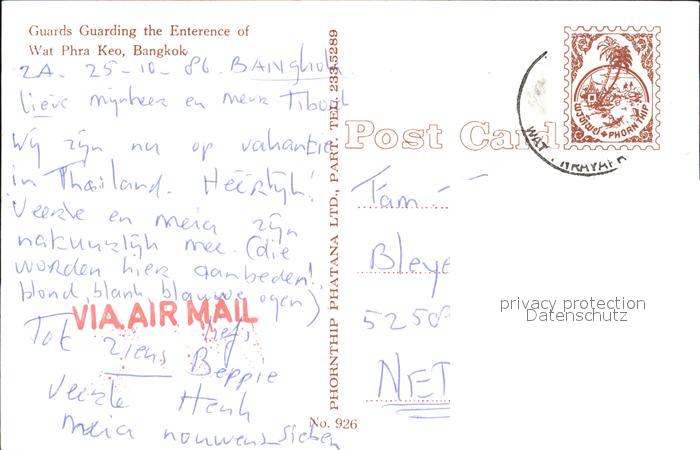 Guards Guarding the Enterence of
Wat Phra Keo, Bangkok
ZA. 25-10-86. BANGkok
Lieve mijnheer en mevr. Tibout
Wij zijn nu op vakantie
in Thailand. Heerlijk!
Veerle en meia zijn
natuurlijk mee. (die
worden hier aanbeden!
blond, blank, blauwe ogen)
VIA AIR MAIL
Tot ziens
Beppie
Veerle Henk
meia
PHORNTHIP PHATANA LTD., PART. TEL. 2335289
No. 926
Post Card
PHORNTHIP
WAT
Fam.
Bleye
5250
NET
privacy protection
Datenschutz